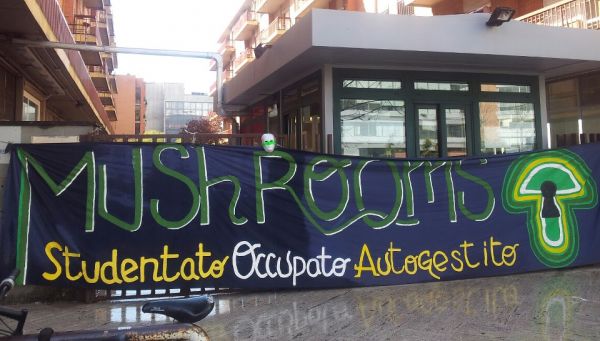 MUShROOMS
Studentato Occupato Autogestito